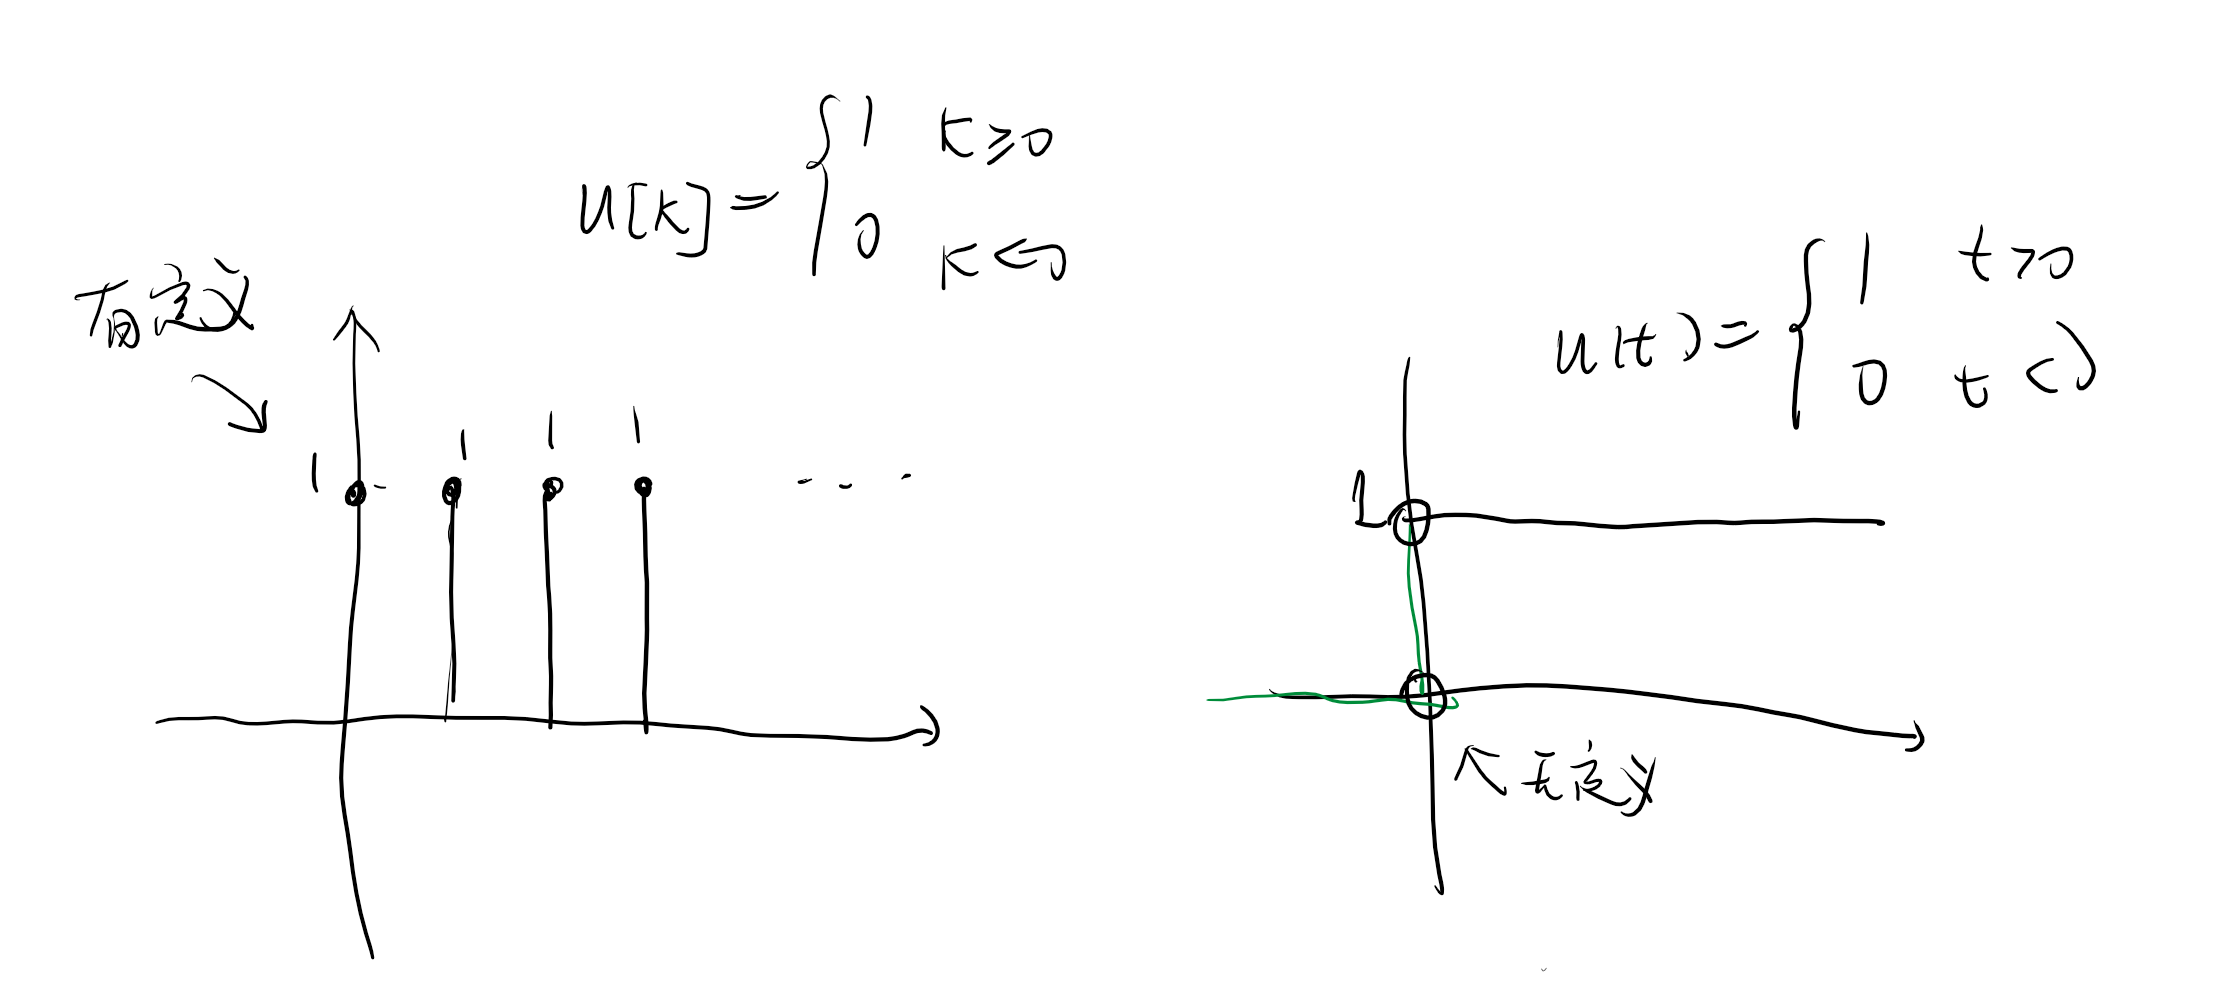 u[k] = { 1 k≥0
0 k<0
有定义
1 1 1 1 ...
u(t) = { 1 t>0
0 t<0
1
无定义